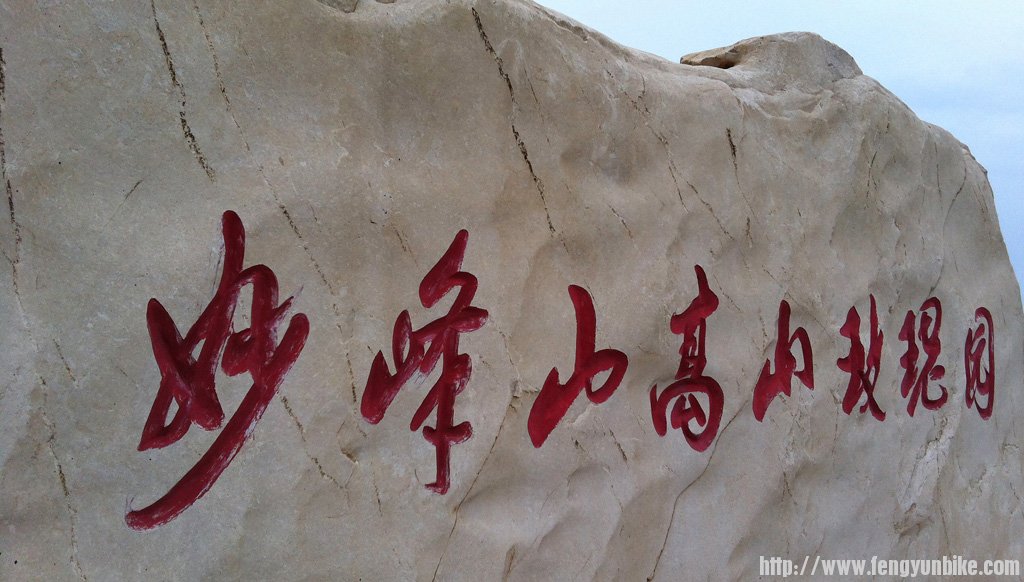 妙峰山高山玫瑰园
http://www.fengyunbike.com